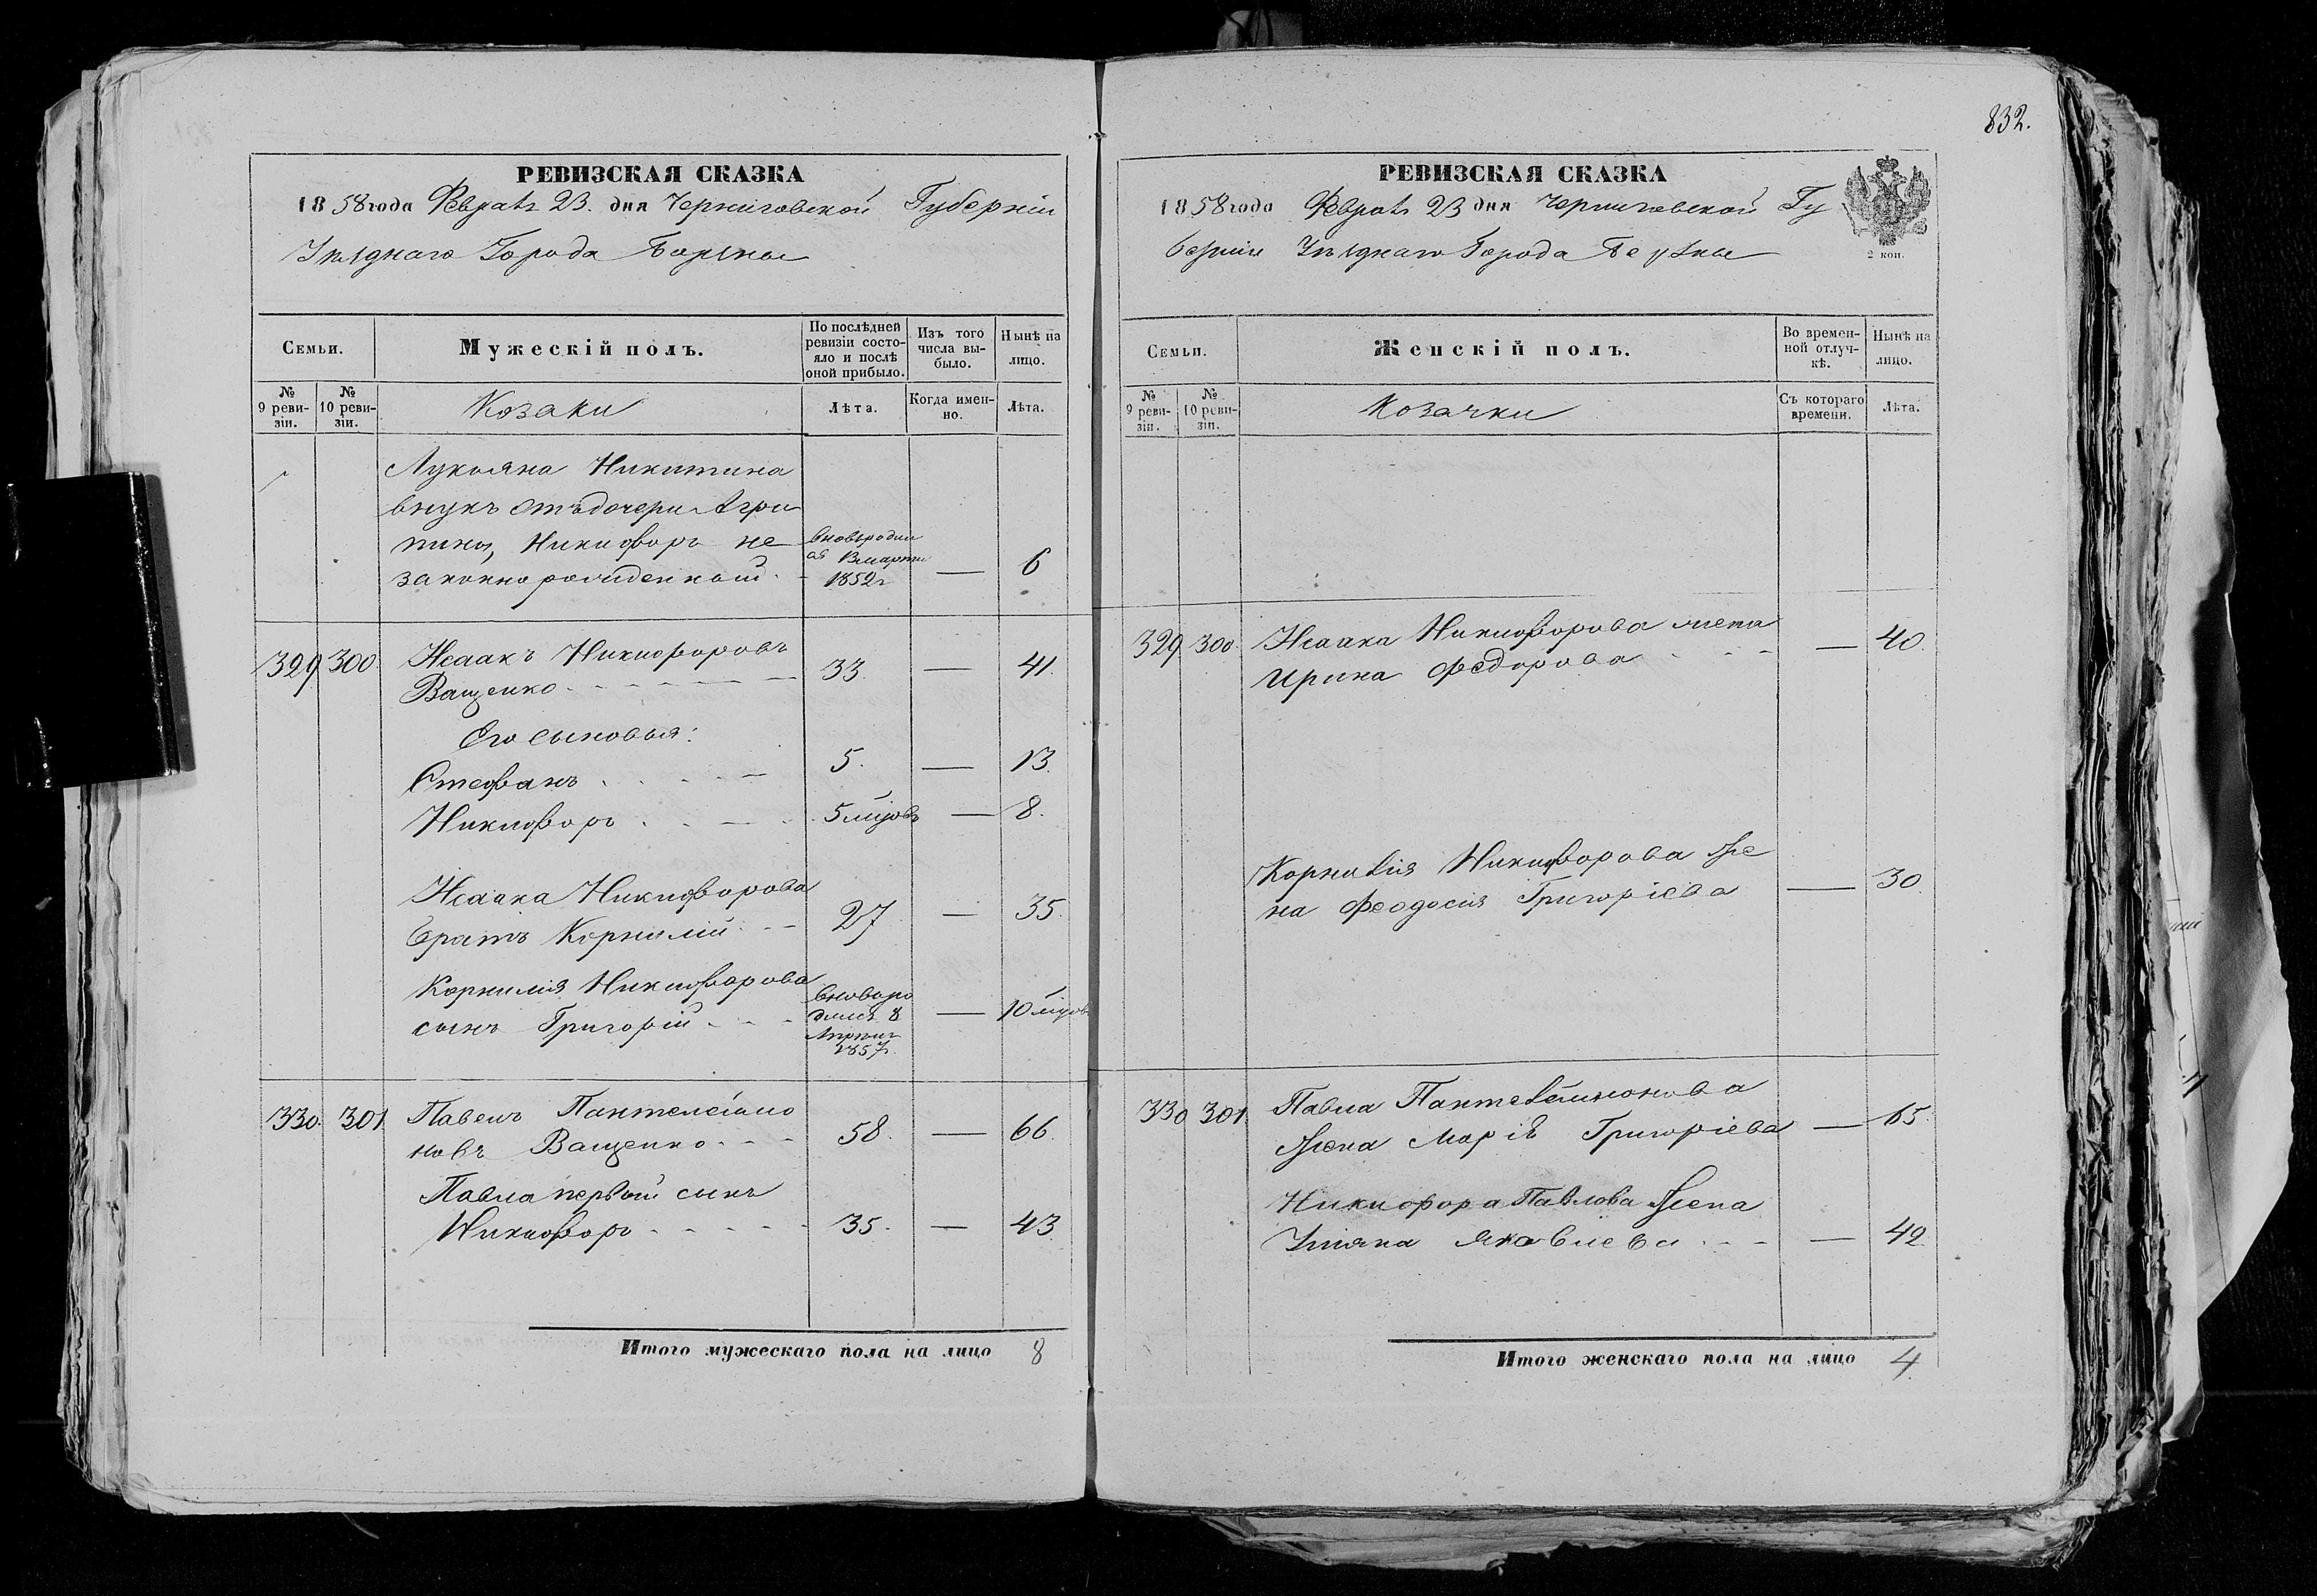 РЕВИЗСКАЯ СКАЗКА
1858 года Февраля 23. дня Черниговской Губерніи
Уѣзднаго Города Борзны
Семьи.
Мужескій полъ.
По послѣдней ревизіи состояло и послѣ оной прибыло.
Изъ того числа выбыло.
Нынѣ на лицо.
№ 9 ревизіи.
№ 10 ревизіи.
Козаки
Лѣта.
Когда именно.
Лѣта.
Лукьяна Никитина
внукъ отъ дочери Агри
пины, Никифоръ не
законно рожденный - вновь родил
ся В марти
1852 г — 6
329 300. Исаакъ Никифоровъ
Ващенко - 33 — 41.
Его сыновья:
Стефанъ 5. — 13.
Никифоръ 5 мцовъ — 8.
Исаака Никифорова
братъ Корнилій 27 — 35.
Корнилія Никифорова
сынъ Григорій вновь ро
дился 8
Апрѣля
1857 г. — 10 мцов
330. 301. Павелъ Пантелеймо
новъ Ващенко 58. — 66.
Павла первый сынъ
Никифоръ 35. — 43.
Итого мужескаго пола на лицо 8
832.
РЕВИЗСКАЯ СКАЗКА
1858 года Февраля 23 дня Черниговской Гу
берніи Уѣзднаго Города Борзны
2 коп.
Семьи.
Женскій полъ.
Во временной отлучкѣ.
Нынѣ на лицо.
№ 9 ревизіи.
№ 10 ревизіи.
Козачки
Съ котораго времени.
Лѣта.
329. 300. Исаака Никифорова жена
Ирина Федорова — 40.
Корнилія Никифорова же
на Феодосия Григоріева — 30.
330 301. Павла Пантелеимонова
жена Марія Григоріева — 65.
Никифора Павлова жена
Ульяна Яковлева — 42.
Итого женскаго пола на лицо 4.